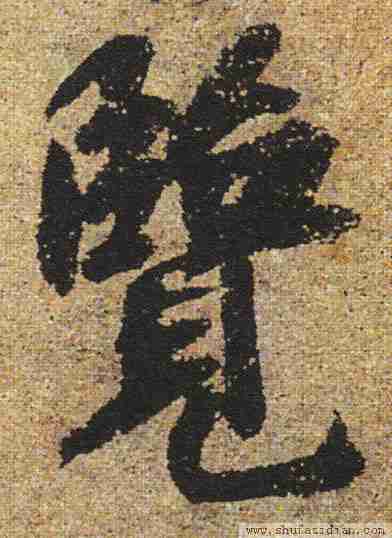 覽
www.shufazidian.com